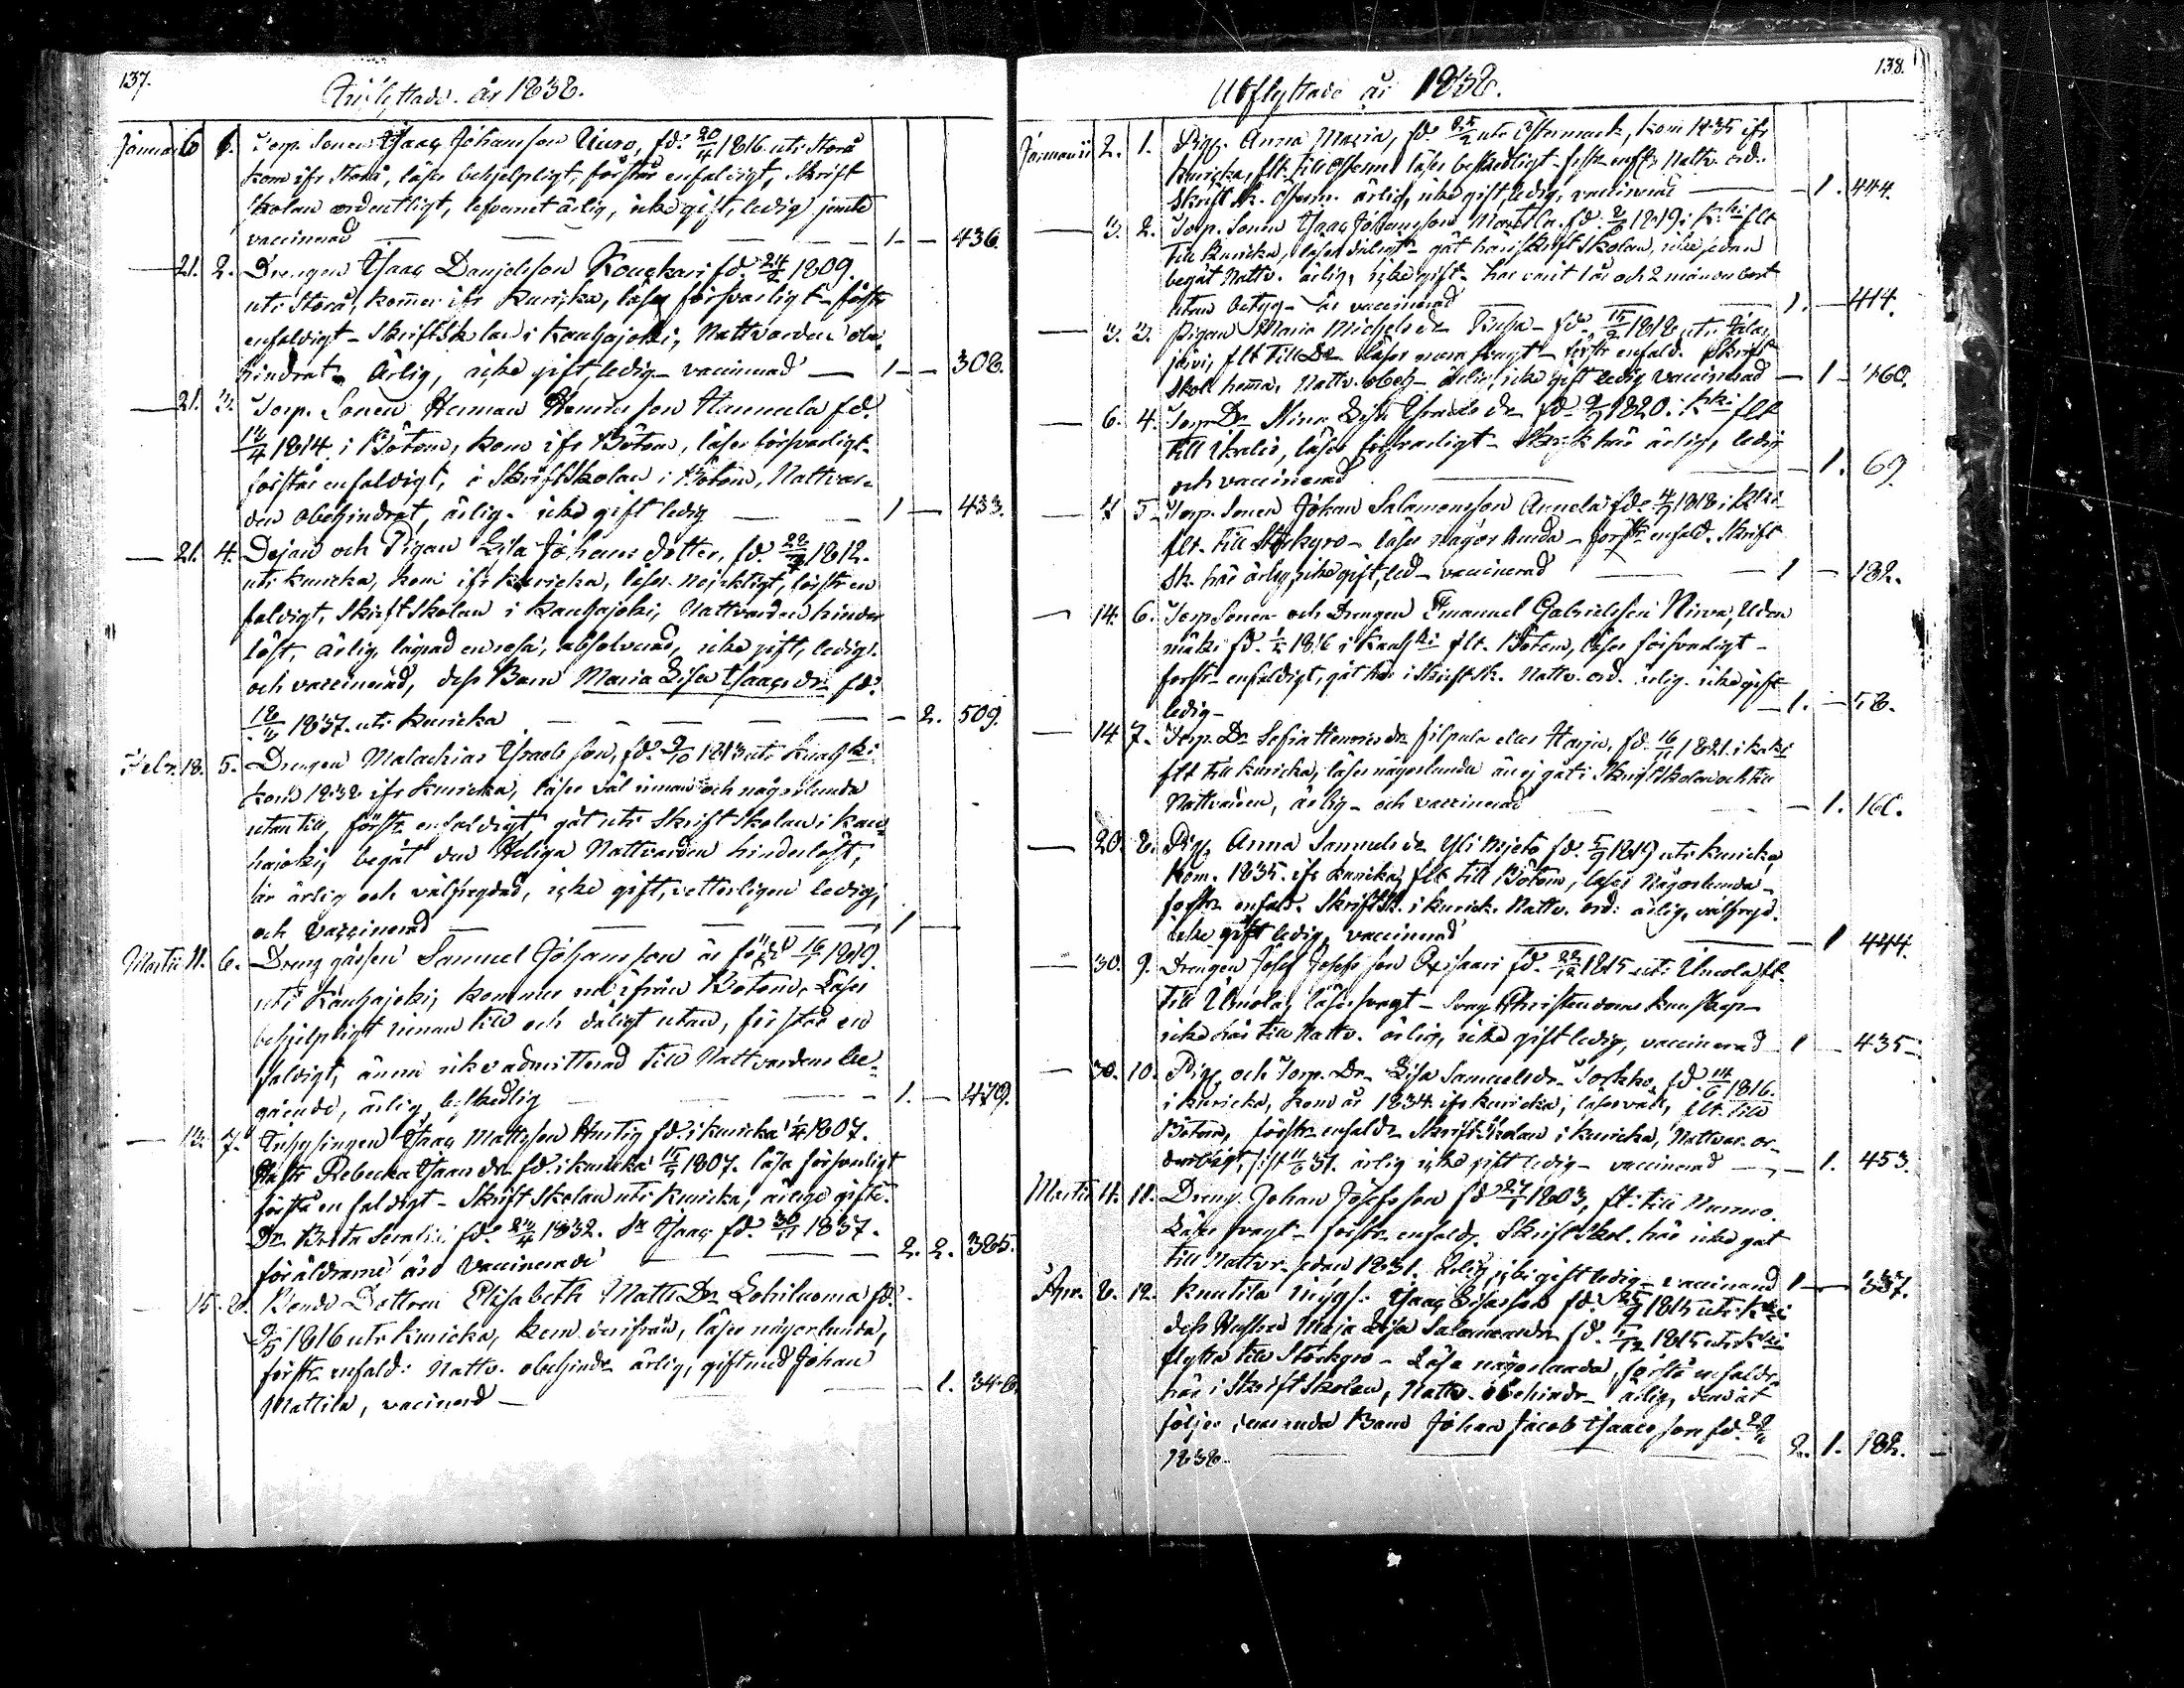 137.
Inflyttade år 1838.
Januar 6 1. Torp. Sonen Isaac Johansson Uuro, fd. 20/4 1816 uti Storå
kom ifr Storå, läser behjelpligt, förstår enfaldigt, Skrift
Skolan ordentligt, lefvernet ärlig, icke gift, ledig jemte
vaccinerad — 1 — 436.
— 21. 2. Drengen Isaac Danjelsson fd. 24/2 1809.
uti Storå, kommer ifr Kuricka, läser försvarligt – förstr
enfaldigt – Skriftskolan i Kauhajoki, Nattvarden obe
hindrat. Ärlig, icke gift, ledig – vaccinerad — 1 — 308.
— 21. 3. Torp. Sonen Herman Henricsson Hannula fd.
1814. i Bötom, kom ifr Bötom, läser försvarligt
förstår enfaldigt, i Skriftskolan i Bötom, Nattvar-
den obehindrat, ärlig. icke gift ledig — 1 — 433.
— 21. 4. Dejan och Pigan Lisa Johans dotter, fd. 1812.
uti Kuricka, kom ifr Kuricka, läser förstr en
faldigt, Skriftskolan i Kauhajoki, Nattvarden hinder
löst, ärlig, lägrad en resa, absolverad, icke gift, ledig.
och vaccinerad, dess Barn Maria Lisa Isaacs dr fd.
1837. uti Kuricka — 2. 509.
Febr. 18. 5. Drengen Malachias Israels son, fd. 9/10 1813 uti Kauhki
kom 1832 ifr Kuricka, läser väl innan och någorlunda
utantill, förstr enfaldigt, gåt uti Skriftskolan i Kau
hajoki, begåt den Heliga Nattvarden hinderlöst,
är ärlig och välfrejdad, icke gift, vetterligen ledig,
och vaccinerad — 1 —
Martii 11. 6. Dreng gåssen Samuel Johansson är född 1819.
uti Kauhajoki, kommer nu ifrån Bötom. Läser
behjelpligt innan till och dåligt utan, förstår en
faldigt, ännu icke admitterad till Nattvardens be-
gående, ärlig, beskedlig — 1. — 479.
— 13. 7. Inhysingen Isaac Mattsson Hurtig fd. i Kuricka 1807.
Hustr Rebecka Isaacs dr fd. i Kuricka 1807. läsa försvarligt
förstå enfaldigt – Skriftskolan uti Kuricka, ärlige gifte.
Dr. Brita Serafia fd. 1832. Sn Isaac fd. 30/11 1837.
föräldrarne äro vaccinerade — 2. 2. 385.
— 15. 8. Bonde Dottren Elisabeth Matts Dr. Lohiluoma fd.
1816 uti Kuricka, kom derifrån, läser någorlunda,
förstr enfald: Nattv. obehindr ärlig, gift med Johan
Mattila, vacinerad — 1. 346.
138.
Utflyttade år 1838.
Januarii 2. 1. Pig. Anna Maria, fd. uti Östermark, kom 1835 ifr
Kuricka, flt. till Österm läser beskedligt förstr enft Nattv. ord.
Skrift Sk. Österm. ärlig, icke gift, ledig, vaccinerad — 1. 444.
— 3. 2. Torp. Sonen Isaac Johansson Mattila. fd. 1819 i K.ki flt
till Kuricka, läser dåligt – gåt här i Skriftskolan, icke sedan
begåt Nattv. ärlig, icke gift – har varit 1 år och 2 månar bort
utan betyg – är vaccinerad — 1. — 414.
— 3. 3. Pigan Maria Michels dr fd. 1818 uti Jalas
järvi, flt till Do läser svagt – förstr enfald. Skrift
Skol hemma, Nattv. obeh – ärlig, icke gift ledig vaccinerad — 1 – 460.
— 6. 4. Torp Dr. Israels dr fd. 1820 i Kki flt
till Ikalis, läser försvarligt – här ärlig, ledig
och vaccinerad — 1. 69.
— 7 5. Torp. Sonen Johan Salamonsson Annela fd. 1818 i Kki
flt. till Storkyro – läser någorlunda – förstr enfald. Skrift
Sk. här ärlig, icke gift, led – vaccinerad — 1 — 182.
— 14. 6. Torp Sonen och Drengen Emanuel Gabrielsson Nirva,
fd. 1816 i Kauhki flt. Bötom, läser försvarligt –
förstr enfaldigt, gåt här i Skrift Sk. Nattv. ord. ärlig. icke gift
ledig – 1. — 58.
— 14 7. Torp. Dr. Sofia Henrics dr Filpula eller Harju, fd. 16/11 1821. i Kki
flt till Kuricka, läser någorlunda än ej gåt i Skriftskolan och till
Nattvarden, ärlig – och vaccinerad — 1. 166.
— 20. 8. Pig. Anna Samuels dr Yli fd. 5/9 1819 uti Kuricka,
kom. 1835. ifr Kuricka, flt till Bötom, läser Någorlunda –
förstr enfald. Skrift Sk. i Kurick. Nattv. ord: ärlig, välfrejd.
icke gift ledig, vaccinerad — 1 444.
— 30. 9. Drengen Josef Josefs son fd. 22/12 1815 uti Ilmola flt
till Ilmola, läser svagt – Svag Christendoms kunskap –
icke här till Nattv. ärlig, icke gift ledig, vaccinerad 1 — 435
— 30. 10. Pig. och Torp. Dr. Lisa Samuels dr fd. 14/6 1816.
i Kuricka, kom år 1834 ifr Kuricka, läser väl, flt. till
Bötom, förstr enfald. Skriftskolan i Kuricka, Nattvar. or-
dentligt, sist 11/6 37. ärlig icke gift ledig – vaccinerad — 1. 453.
Martii 11. 11. Dreng. Johan Josefsson fd 27/7 1803, flt: till Nurmo.
Läser svagt – förstr enfald. Skriftskol. här icke gåt
till Nattvr sedan 1831. Ärlig, icke gift ledig – vaccinerad 1 — 337.
Apr. 8. 12. Knutila inhys: Isaac fd. 25/9 1815 uti Kki
dess Hustru Maja Lisa Salomons dr fd. 1815 uti Kki
flytta till Storkyro – Läsa någorlunda, förstå enfald.
här i Skriftskolan, Nattv. obehindr – ärlig, dem åt
följer Barn Johan Jacob Isaacs son fd.
1838 — 2. 1. 182.